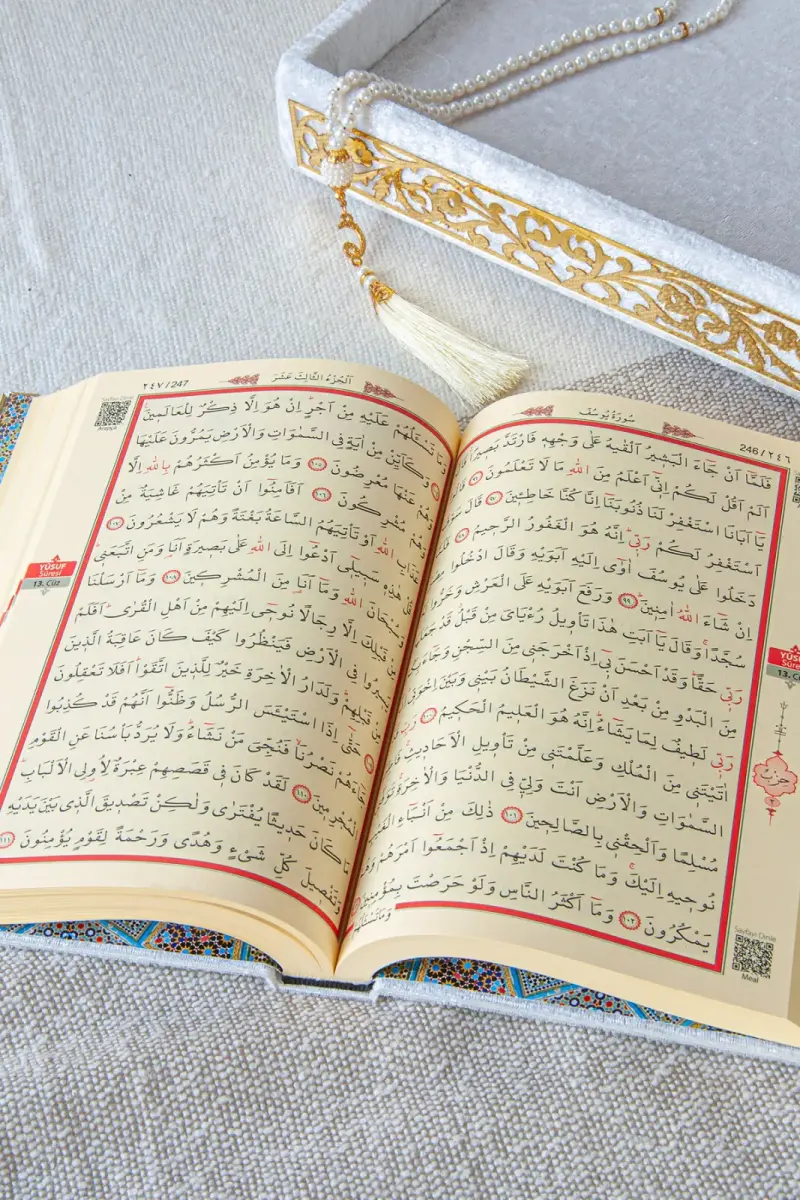 ٢٤٦/246
سُورَةُ يُوسُفَ
فَلَمَّٓا اَنْ جَٓاءَ الْبَش۪يرُ اَلْقٰيهُ عَلٰى وَجْهِه۪ فَارْتَدَّ بَص۪يرًا
اَلَمْ اَقُلْ لَكُمْ اِنّ۪ٓي اَعْلَمُ مِنَ اللّٰهِ مَا لَا تَعْلَمُونَ ٩٦
يَٓا اَبَانَا اسْتَغْفِرْ لَنَا ذُنُوبَنَٓا اِنَّا كُنَّا خَاطِـ۪ٔينَ ٩٧ قَالَ
اَسْتَغْفِرُ لَكُمْ رَبّ۪ي اِنَّهُ هُوَ الْغَفُورُ الرَّح۪يمُ ٩٨
دَخَلُوا عَلٰى يُوسُفَ اٰوٰٓى اِلَيْهِ اَبَوَيْهِ وَقَالَ ادْخُلُوا
اِنْ شَٓاءَ اللّٰهُ اٰمِن۪ينَ ٩٩ وَرَفَعَ اَبَوَيْهِ عَلَى الْعَرْشِ وَخَرُّوا
سُجَّدًا وَقَالَ يَٓا اَبَتِ هٰذَا تَأْو۪يلُ رُءْيَايَ مِنْ قَبْلُ قَدْ
رَبّ۪ي حَقًّا وَقَدْ اَحْسَنَ ب۪ٓي اِذْ اَخْرَجَن۪ي مِنَ السِّجْنِ وَجَٓاءَ
مِنَ الْبَدْوِ مِنْ بَعْدِ اَنْ نَزَغَ الشَّيْطَانُ بَيْن۪ي وَبَيْنَ اِخْوَت۪ي
رَبّ۪ي لَط۪يفٌ لِمَا يَشَٓاءُ اِنَّهُ هُوَ الْعَل۪يمُ الْحَك۪يمُ ١٠٠ رَبِّ
اٰتَيْتَن۪ي مِنَ الْمُلْكِ وَعَلَّمْتَن۪ي مِنْ تَأْو۪يلِ الْاَحَاد۪يثِ
السَّمٰوَاتِ وَالْاَرْضِ اَنْتَ وَلِيّ۪ فِي الدُّنْيَا وَالْاٰخِرَةِ
مُسْلِمًا وَاَلْحِقْن۪ي بِالصَّالِح۪ينَ ١٠١ ذٰلِكَ مِنْ اَنْبَٓاءِ
نُوح۪يهِ اِلَيْكَ وَمَا كُنْتَ لَدَيْهِمْ اِذْ اَجْمَعُٓوا اَمْرَهُمْ
يَمْكُرُونَ ١٠٢ وَمَٓا اَكْثَرُ النَّاسِ وَلَوْ حَرَصْتَ بِمُؤْمِن۪ينَ
13. Cüz
حزب
Sayfayı Dinle
Meal
٢٤٧/247
اَلْجُزْءُ الثَّالِثَ عَشَرَ
وَمَا تَسْـَٔلُهُمْ عَلَيْهِ مِنْ اَجْرٍ اِنْ هُوَ اِلَّا ذِكْرٌ لِلْعَالَم۪ينَ
وَكَاَيِّنْ مِنْ اٰيَةٍ فِي السَّمٰوَاتِ وَالْاَرْضِ يَمُرُّونَ عَلَيْهَا
وَهُمْ عَنْهَا مُعْرِضُونَ ١٠٥ وَمَا يُؤْمِنُ اَكْثَرُهُمْ بِاللّٰهِ اِلَّا
وَهُمْ مُشْرِكُونَ ١٠٦ اَفَاَمِنُٓوا اَنْ تَأْتِيَهُمْ غَاشِيَةٌ مِنْ
عَذَابِ اللّٰهِ اَوْ تَأْتِيَهُمُ السَّاعَةُ بَغْتَةً وَهُمْ لَا يَشْعُرُونَ ١٠٧
قُلْ هٰذِه۪ سَب۪يل۪ٓي اَدْعُٓوا اِلَى اللّٰهِ عَلٰى بَص۪يرَةٍ اَنَا۬ وَمَنِ اتَّبَعَن۪ي
وَسُبْحَانَ اللّٰهِ وَمَٓا اَنَا۬ مِنَ الْمُشْرِك۪ينَ ١٠٨ وَمَٓا اَرْسَلْنَا
مِنْ قَبْلِكَ اِلَّا رِجَالًا نُوح۪ٓي اِلَيْهِمْ مِنْ اَهْلِ الْقُرٰى اَفَلَمْ
يَس۪يرُوا فِي الْاَرْضِ فَيَنْظُرُوا كَيْفَ كَانَ عَاقِبَةُ الَّذ۪ينَ
مِنْ قَبْلِهِمْ وَلَدَارُ الْاٰخِرَةِ خَيْرٌ لِلَّذ۪ينَ اتَّقَوْا اَفَلَا تَعْقِلُونَ
حَتّٰٓى اِذَا اسْتَيْـَٔسَ الرُّسُلُ وَظَنُّٓوا اَنَّهُمْ قَدْ كُذِبُوا
جَٓاءَهُمْ نَصْرُنَا فَنُجِّيَ مَنْ نَشَٓاءُ وَلَا يُرَدُّ بَأْسُنَا عَنِ الْقَوْمِ
الْمُجْرِم۪ينَ ١١٠ لَقَدْ كَانَ ف۪ي قَصَصِهِمْ عِبْرَةٌ لِاُو۬لِي الْاَلْبَابِ
مَا كَانَ حَد۪يثًا يُفْتَرٰى وَلٰكِنْ تَصْد۪يقَ الَّذ۪ي بَيْنَ يَدَيْهِ
وَتَفْص۪يلَ كُلِّ شَيْءٍ وَهُدًى وَرَحْمَةً لِقَوْمٍ يُؤْمِنُونَ ١١١
YÛSUF
Sûresi
13. Cüz